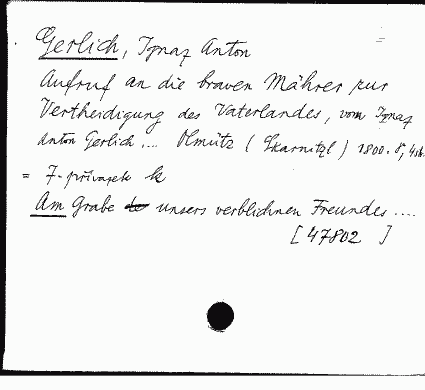 Gerlich, Ignaz Anton
Aufruf an die braven Mährer zur
Vertheidigung des Vaterlandes, vom Ignaz
Anton Gerlich ... Olmütz (Skarnitzl) 1800. 8°, 4 sh.
= 7. přívazek k
Am Grabe unsers verblichnen Freundes ....
[47802 ]